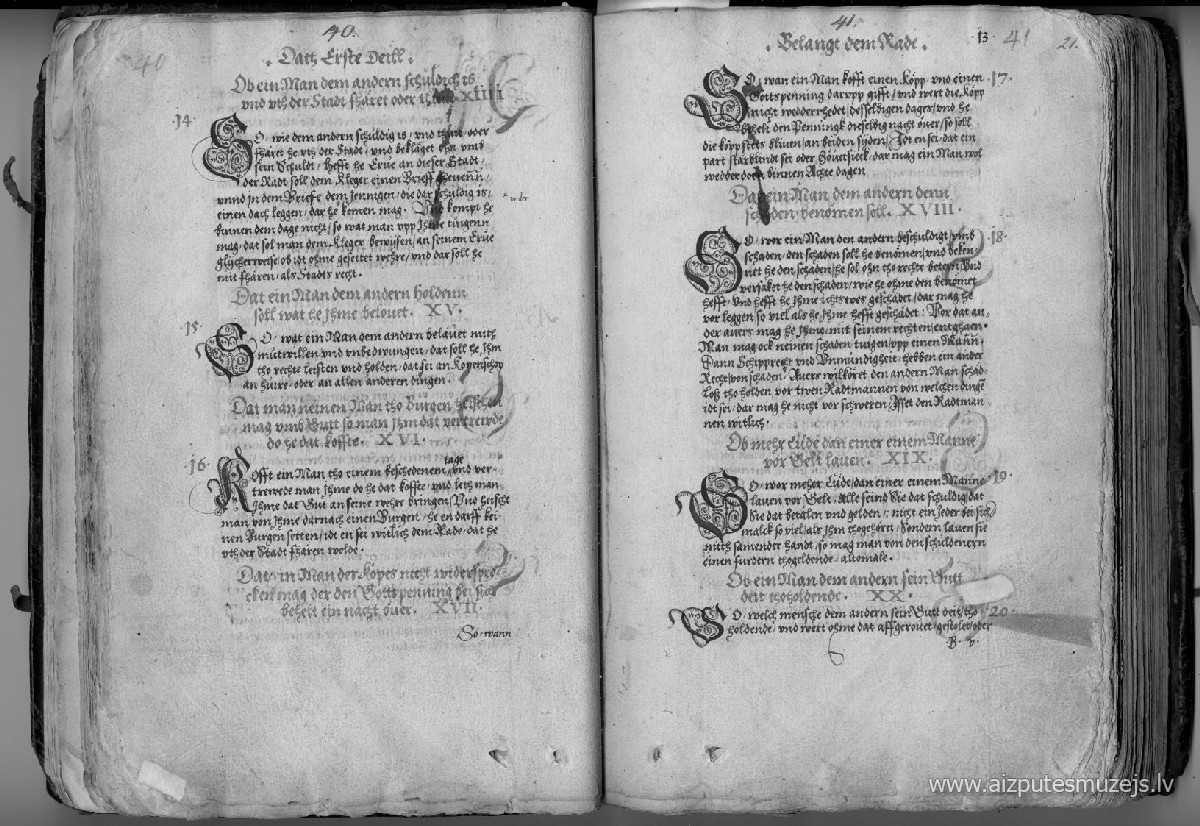 40.
40
Dath Erste Deill.
Ob ein Man dem andern schuldich is
vnd vth der Stadt fharet oder XIIII
14
So wie dem andern schuldig is, vnd oder
fharet he vth der Stadt, vnd beklaget ohn vmb
sein Schuldt, hefft he Erue an dieser Stadt,
der Radt soll dem Kleger einen Brieff geuenn,
vnnd in dem Brieffe dem jennigen, die dar schuldig is,
einen dach leggen, dar he komen mag. Vnd kompt he
binnen dem dage nicht, so wat man vpp Jhme tuigenn
mag, dat sol man dem Kleger bewisen, an seinem Erue
glicherweise ob idt ohme gesettet wehre, vnd dar soll he
mit fharen, als Stadts recht.
Dat ein Man dem andern holdenn
soll wat he Jhme belouet. XV.
15
So wat ein Man dem andern belauet mith
mutwillen vnd vnbedwungen, dat soll he Jhm
tho rechte leisten vnd holden, dat sei an Kopenschop
an huire, oder an allen anderen dingen.
Dat man neinen Man tho Burgen
mag vmb Gutt so man Jhm dat
do he dat koffte. XVI.
16
tage
Kofft ein Man tho einem beschedenem, vnd ver-
trewede man Jhme do he dat koffte, vnd leth man
Jhme dat Gut an seine wehre bringen, Vnd heische
man von Jhme darnach einen Burgen, he en darff kei-
nen Burgen setten, idt en sei witlich dem Rade, dat he
vth der Stadt fharen wolde.
Dat ein Man des Kopes nicht widerspre-
cken mag der den Gottspenning bei sich
behelt ein nacht ouer. XVII.
So wann
41.
Belangt dem Rade.
13
41
21.
17.
So wan ein Man kofft einen Köpp, vnd einen
Gottspenning darvpp gifft, vnd wert die Köpp
nicht wedderredet, desselbigen dages, vnd he
behelt den Penningk dieselbig nacht ouer, so soll
die köpp stets bliuen an beiden syden, Jdt en sei, dat ein
part starblindt sei oder Höuetsieck, dar mag ein Man wol
wedder doen binnen Achte dagen
Dat ein Man dem andern denn
schaden benömen soll. XVIII.
18.
So wor ein Man den andern beschuldigt, vmb
schaden, den schaden soll he benömen, vnd beken-
net he den schaden, he sol ohn tho rechte betern, Vnd
versaket he den schaden, wie he ohme den benomet
hefft, Vnd hefft he Jhme ichtswes geschadet, dar mag he
vor leggen so viel als he Jhme hefft geschadet: Vor dat an-
der auers mag he Jhme, mit seinem rechten, entghaen.
Man mag ock neinen schaden tuigen, vpp einen Mann.
Dann Schipprecht vnd Vnmündigheit, hebben ein ander
Recht, von schaden. Auers wilköret den andern Man schad-
loß tho holden vor twen Radtmannen von welchen dinge
idt sei, dar mag he nicht vor schweren, Jsset den Radtman-
nen witlich.
Ob mehr Lüde dan einer einem Manne
vor Gelt lauen. XIX.
19
So wor meher Lüde, dan einer einem Manne
lauen vor Gelt. Alle seind Sie dat schuldig, dat
Sie dat betalen vnd gelden, nicht ein Jeder bei sich,
malck so viel als Jhm thogehort, Sondern lauen sie
mith samender handt, so mag man von den schuldenern
einen furdern thogeldende, altomale.
Ob ein Man dem andern sein Gutt
deit thoholdende. XX.
20.
So welch mensche dem andern sein Gutt deit, tho
holdende, vnd wert ohme dat affgerouet, gestolet, oder
B. v.
www.aizputesmuzejs.lv